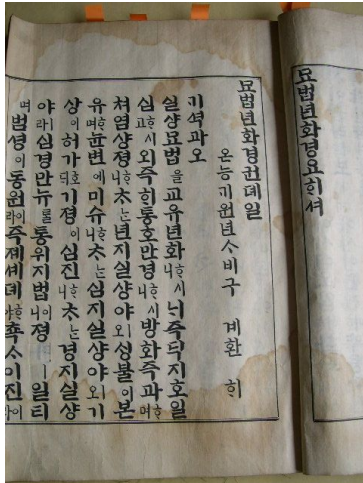 묘법년화경요ᄒᆡ셔
묘법년화경권뎨일
온능기원년ᄉ비구 계환 ᄒᆡ
기셕과오
실샹묘법을 교유년화ᄒᆞ시니 ᄂᆡ즉딕지호일
심ᄒᆞ시고 외즉ᄒᆡ통호만경ᄒᆞ시니 방화즉과ᄒᆞ며
쳐염샹졍ᄒᆞ니 ᄎᆞᄂᆞᆫ년지실샹야오 ᄉᆡᆼ불이본
유ᄒᆞ며 뉸변에 미슈ᄒᆞ니 ᄎᆞᄂᆞᆫ심지실샹야오 기
상이 허가호ᄃᆡ 기졍이 심진ᄒᆞ니 ᄎᆞᄂᆞᆫ경지실샹
야라 심경만뉴를 통위지법이니 졍ㅣ일티
며 범셩이동원이라 즉졔셰뎨ᄒᆞ야 쵹ᄉᆞ이진이라